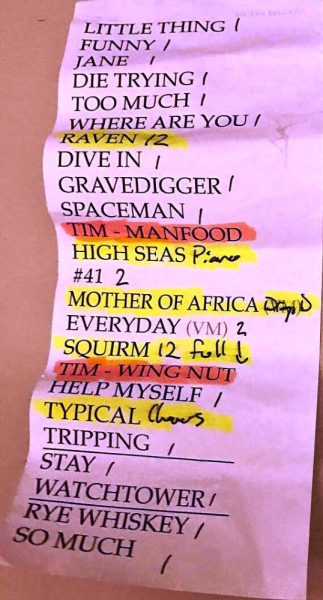 LITTLE THING /
FUNNY /
JANE /
DIE TRYING /
TOO MUCH /
WHERE ARE YOU /
RAVEN 12
DIVE IN /
GRAVEDIGGER /
SPACEMAN /
TIM - MANFOOD
HIGH SEAS Piano
#41 2
MOTHER OF AFRICA
EVERYDAY (VM) 2
SQUIRM 12 full ↓
TIM - WING NUT
HELP MYSELF /
TYPICAL
TRIPPING /
STAY /
WATCHTOWER /
RYE WHISKEY /
SO MUCH /